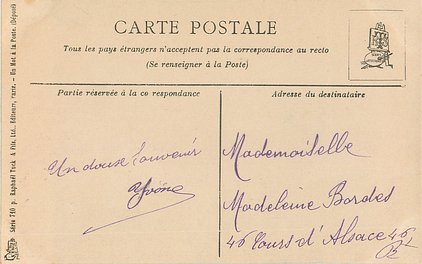 CARTE POSTALE
Tous les pays étrangers n'acceptent pas la correspondance au recto
(Se renseigner à la Poste)
Partie réservée à la co respondance
Adresse du destinataire
Un douse souvenir
Yvône
Mademoiselle
Madeleine Bordes
46 Cours d'Alsace 46
Série 710 p. Raphaël Tuck & fils, Ltd, Editeurs, Paris. — Un Mot à la Poste. (Déposé)